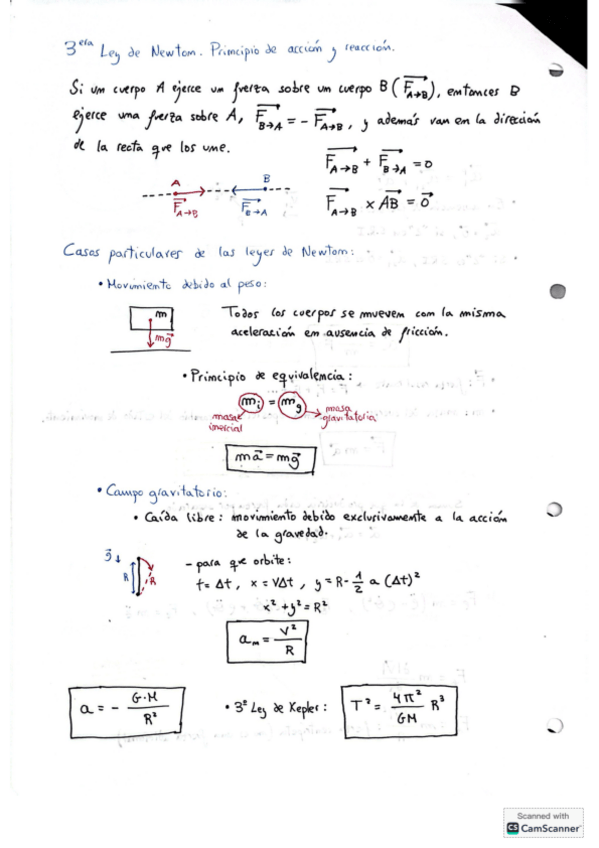 3era Ley de Newton. Principio de acción y reacción.
Si un cuerpo A ejerce un fuerza sobre un cuerpo B (F⃗A→B), entonces B
ejerce una fuerza sobre A, F⃗B→A = - F⃗A→B, y además van en la dirección
de la recta que los une.
F⃗A→B + F⃗B→A = 0
A B
F⃗A→B F⃗B→A
F⃗A→B x AB⃗ = 0⃗
Casos particulares de las leyes de Newton:
• Movimiento debido al peso:
m
mg⃗
Todos los cuerpos se mueven con la misma
aceleración en ausencia de fricción.
• Principio de equivalencia:
mi = mg
masa inercial
masa gravitatoria
ma⃗ = mg⃗
• Campo gravitatorio:
• Caída libre: movimiento debido exclusivamente a la acción
de la gravedad.
g⃗ ↓
R R
- para que orbite:
t = Δt, x = VΔt, y = R - 1/2 a (Δt)²
x² + y² = R²
am = V²/R
a = - G·M/R²
• 3ª Ley de Kepler:
T² = 4π²/GM R³
Scanned with
CS CamScanner